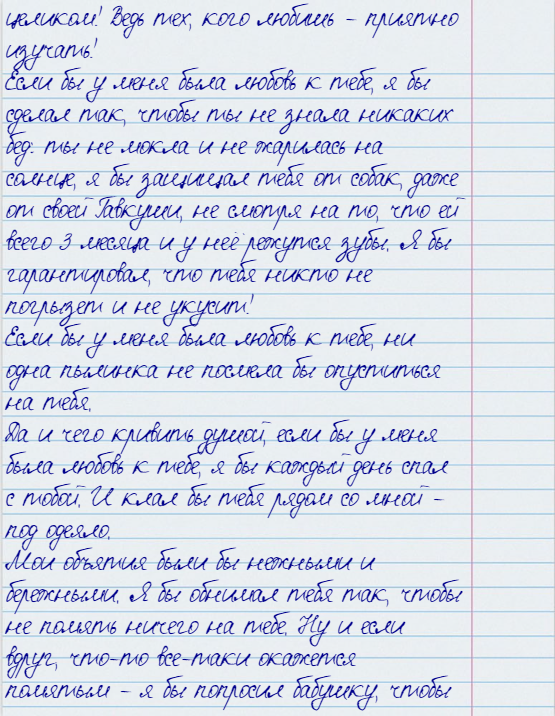 целиком! Ведь тех, кого любишь - приятно
изучать!
Если бы у меня была любовь к тебе, я бы
сделал так, чтобы ты не знала никаких
бед: ты не мокла и не жарилась на
солнце, я бы защищал тебя от собак, даже
от своей Гавкуши, не смотря на то, что ей
всего 3 месяца и у неё режутся зубы. Я бы
гарантировал, что тебя никто не
погрызет и не укусит!
Если бы у меня была любовь к тебе, ни
одна пылинка не посмела бы опуститься
на тебя.
Да и чего кривить душой, если бы у меня
была любовь к тебе, я бы каждый день спал
с тобой. И клал бы тебя рядом со мной -
под одеяло.
Мои объятия были бы нежными и
бережными. Я бы обнимал тебя так, чтобы
не помять ничего на тебе. Ну и если
вдруг, что-то все-таки окажется
помятым - я бы попросил бабушку, чтобы